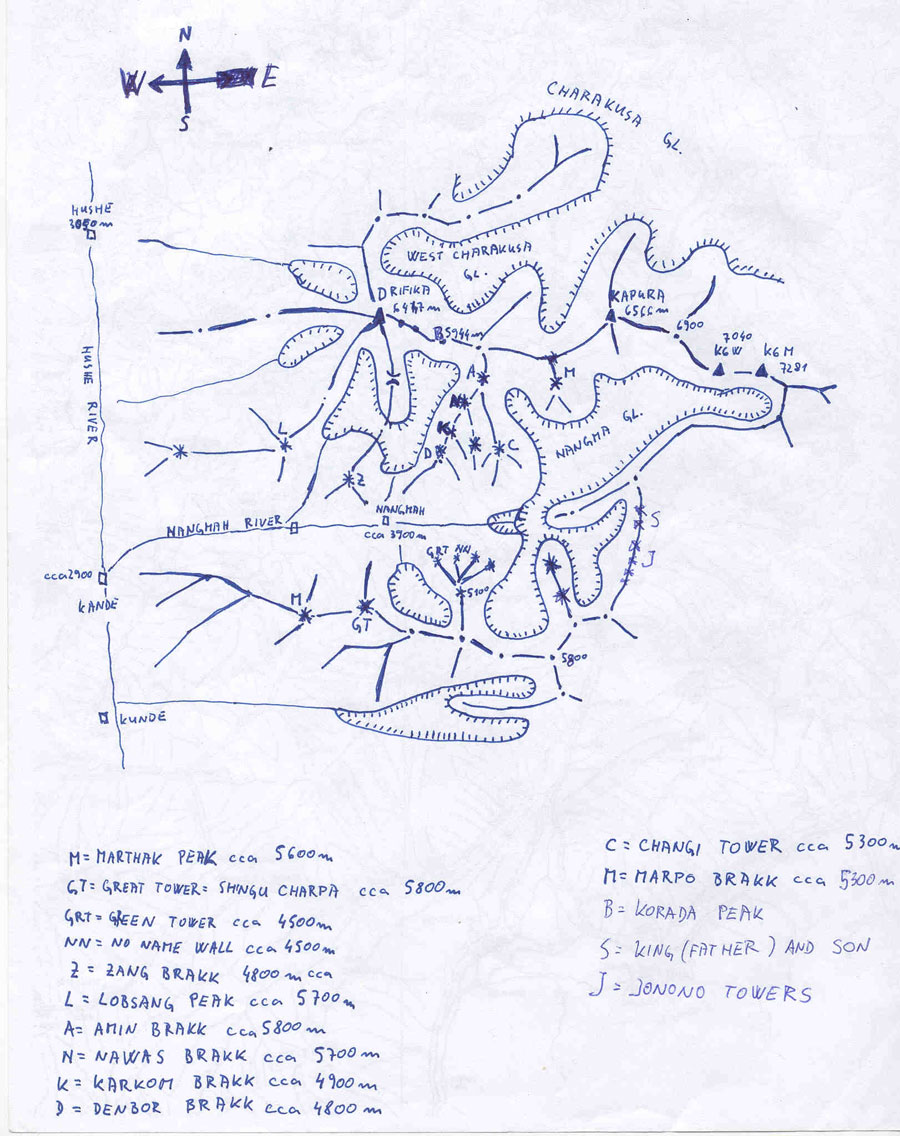 N
W E
S
CHARAKUSA
GL.
HUSHE
3050 m
WEST CHARAKUSA
GL.
DRIFIKA
6447 m
KAPURA
6566 m
B 5944m
6900
7040
K6W K6M
7281
HUSHE RIVER
A
M
N
K
D
C
L
Z
NANGMA GL.
NANGMAH RIVER
NANGMAH
cca 3900m
S
J
cca 2900
KANDE
GRT NN
5100
M
GT
5800
KUNDE
M= MARTHAK PEAK cca 5600m
GT= GREAT TOWER= SHINGU CHARPA cca 5800m
GRT= GREEN TOWER cca 4500m
NN= NO NAME WALL cca 4500m
Z = ZANG BRAKK 4800m cca
L = LOBSANG PEAK cca 5700m
A= AMIN BRAKK cca 5800m
N= NAWAS BRAKK cca 5700m
K= KARKOM BRAKK cca 4900m
D = DENBOR BRAKK cca 4800m
C = CHANGI TOWER cca 5300m
M= MARPO BRAKK cca 5300m
B= KORADA PEAK
S= KING (FATHER) AND SON
J = JONONO TOWERS